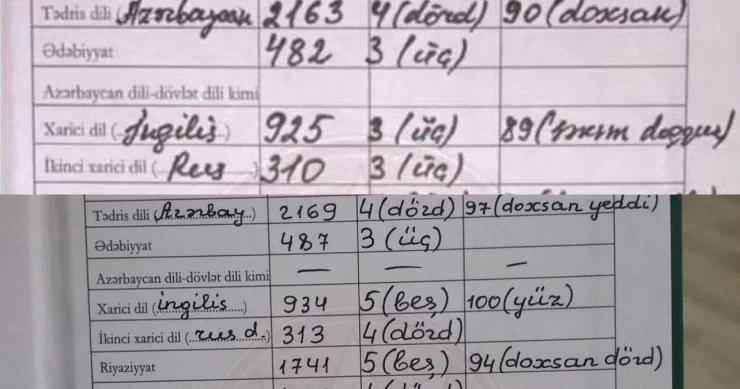 Tədris dili (Azərbaycan 2163 4 (dörd) 90 (doxsan)
Ədəbiyyat 482 3 (üç)
Azərbaycan dili-dövlət dili kimi
Xarici dil (..İngilis..) 925 3 (üç) 89 (səksən doqquz)
İkinci xarici dil (..Rus......) 310 3 (üç)
Tədris dili (Azərbay...) 2169 4 (dörd) 97 (doxsan yeddi)
Ədəbiyyat 487 3 (üç)
Azərbaycan dili-dövlət dili kimi — — —
Xarici dil (ingilis......) 934 5 (beş) 100 (yüz)
İkinci xarici dil (..rus d..) 313 4 (dörd)
Riyaziyyat 1741 5 (beş) 94 (doxsan dörd)